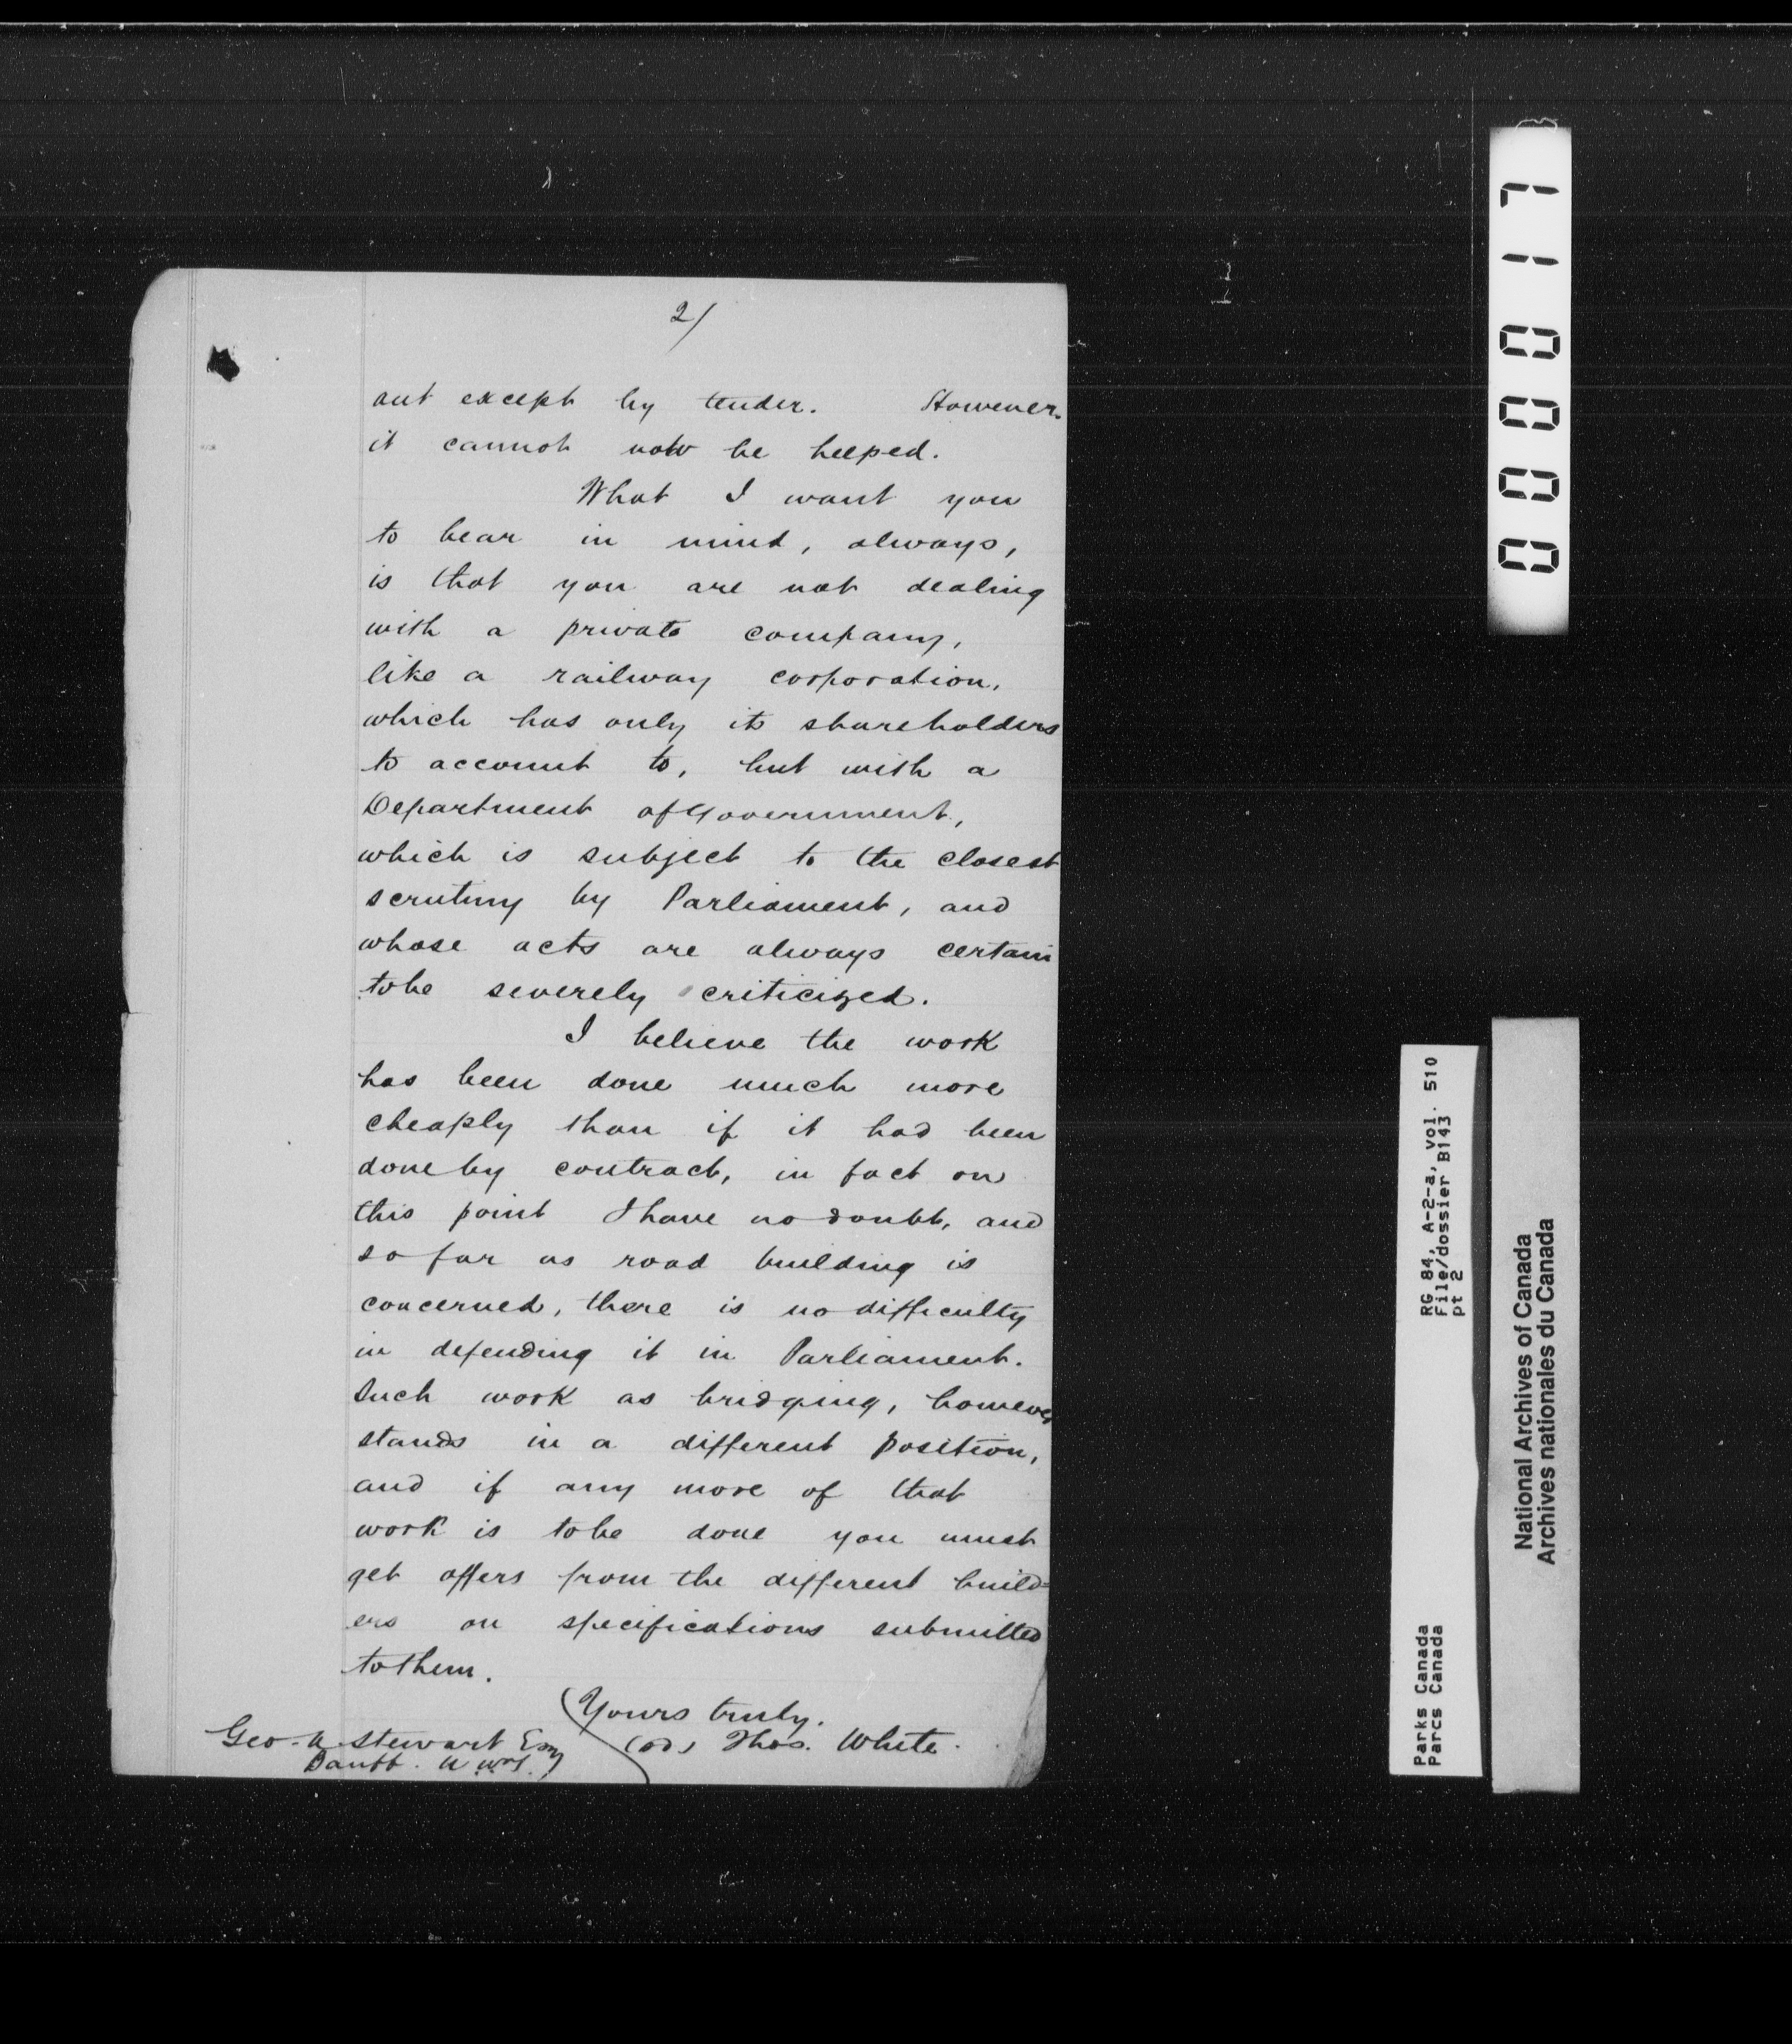 2/
out except by tender. However
it cannot now be helped.
What I want you
to bear in mind, always,
is that you are not dealing
with a private company,
like a railway corporation,
which has only its shareholders
to account to, but with a
Department of Government,
which is subject to the closest
scrutiny by Parliament, and
whose acts are always certain
to be severely criticized.
I believe the work
has been done much more
cheaply than if it had been
done by contract, in fact on
this point I have no doubt, and
so far as road building is
concerned, there is no difficulty
in defending it in Parliament.
Such work as bridging, however
stands in a different position,
and if any more of that
work is to be done you must
get offers from the different build=
ers on specifications submitted
to them.
Yours truly.
(sd) Thos. White.
Geo. A. Stewart Esq
Banff. N.W.T.
000017
RG 84, A-2-a, vol. 510
File/dossier B143
pt 2
Parks Canada
Parcs Canada
National Archives of Canada
Archives nationales du Canada